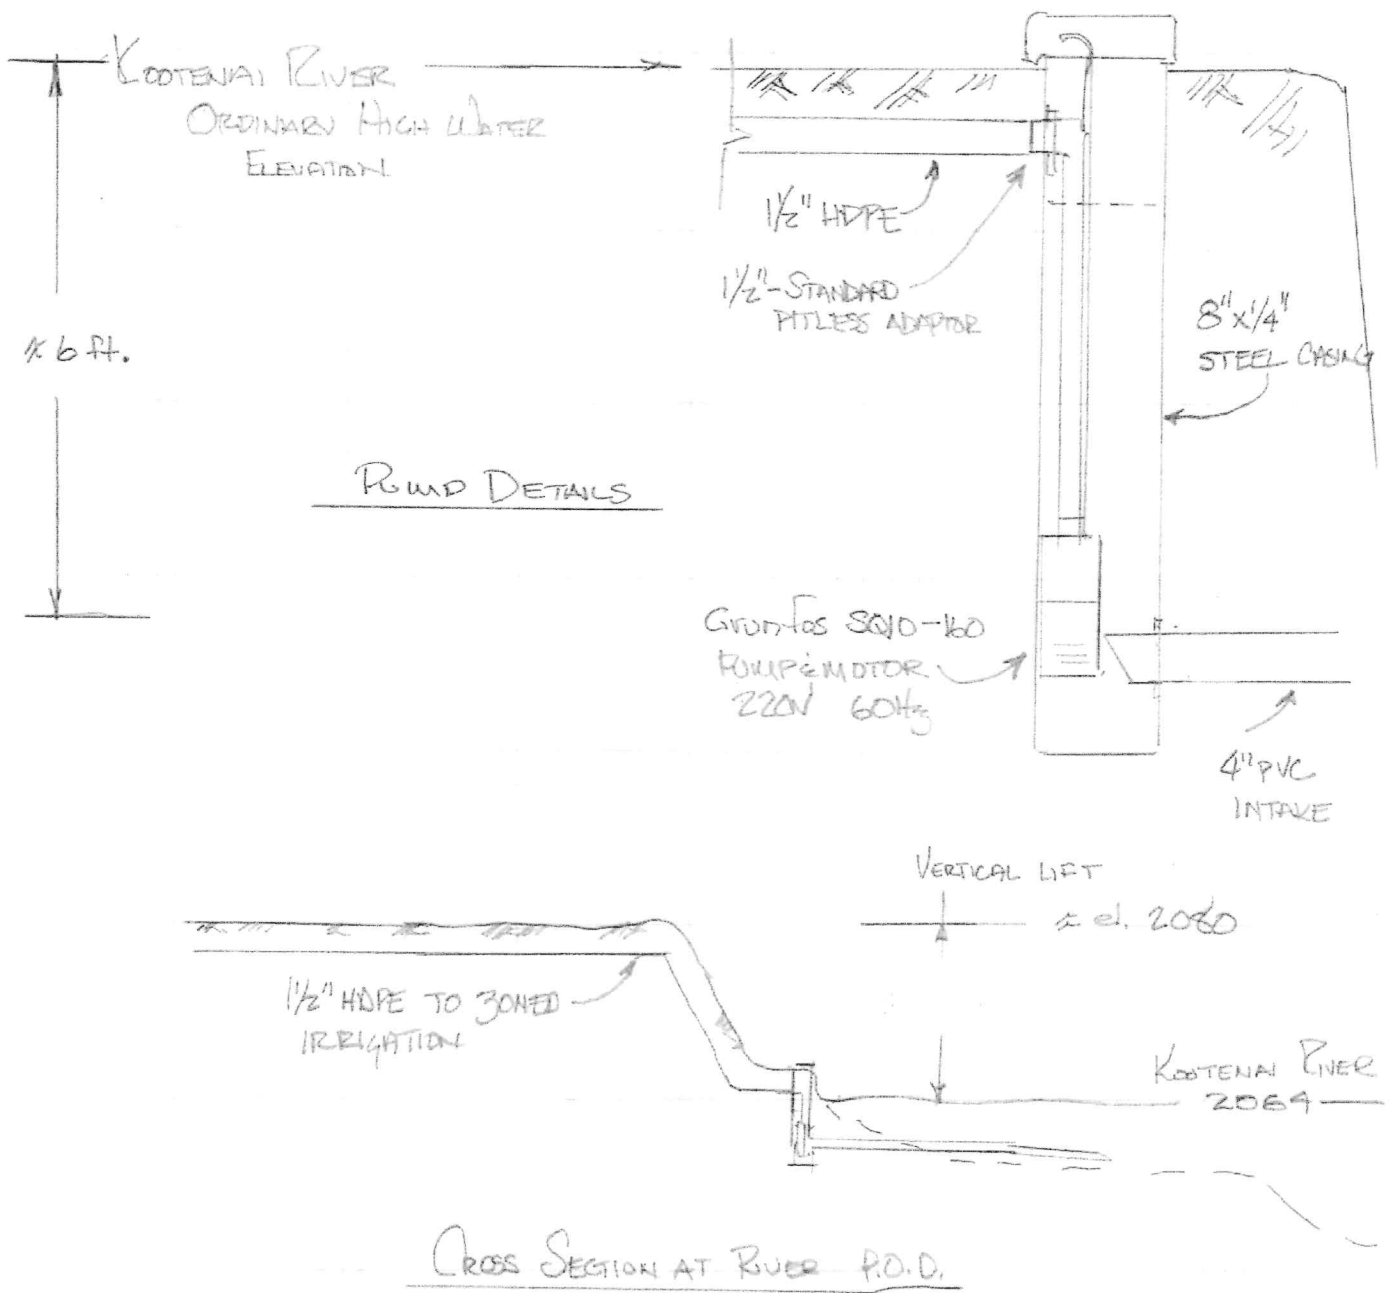 KOOTENAI RIVER
ORDINARY HIGH WATER
ELEVATION
1½" HDPE
1½"-STANDARD
PITLESS ADAPTOR
8"x1/4"
STEEL CASING
± 6 ft.
PUMP DETAILS
Grunfos SQ10-160
PUMP & MOTOR
220V 60Hz
4" PVC
INTAKE
VERTICAL LIFT
± el. 2080
1½" HDPE TO ZONED
IRRIGATION
KOOTENAI RIVER
2064
CROSS SECTION AT RIVER P.O.D.